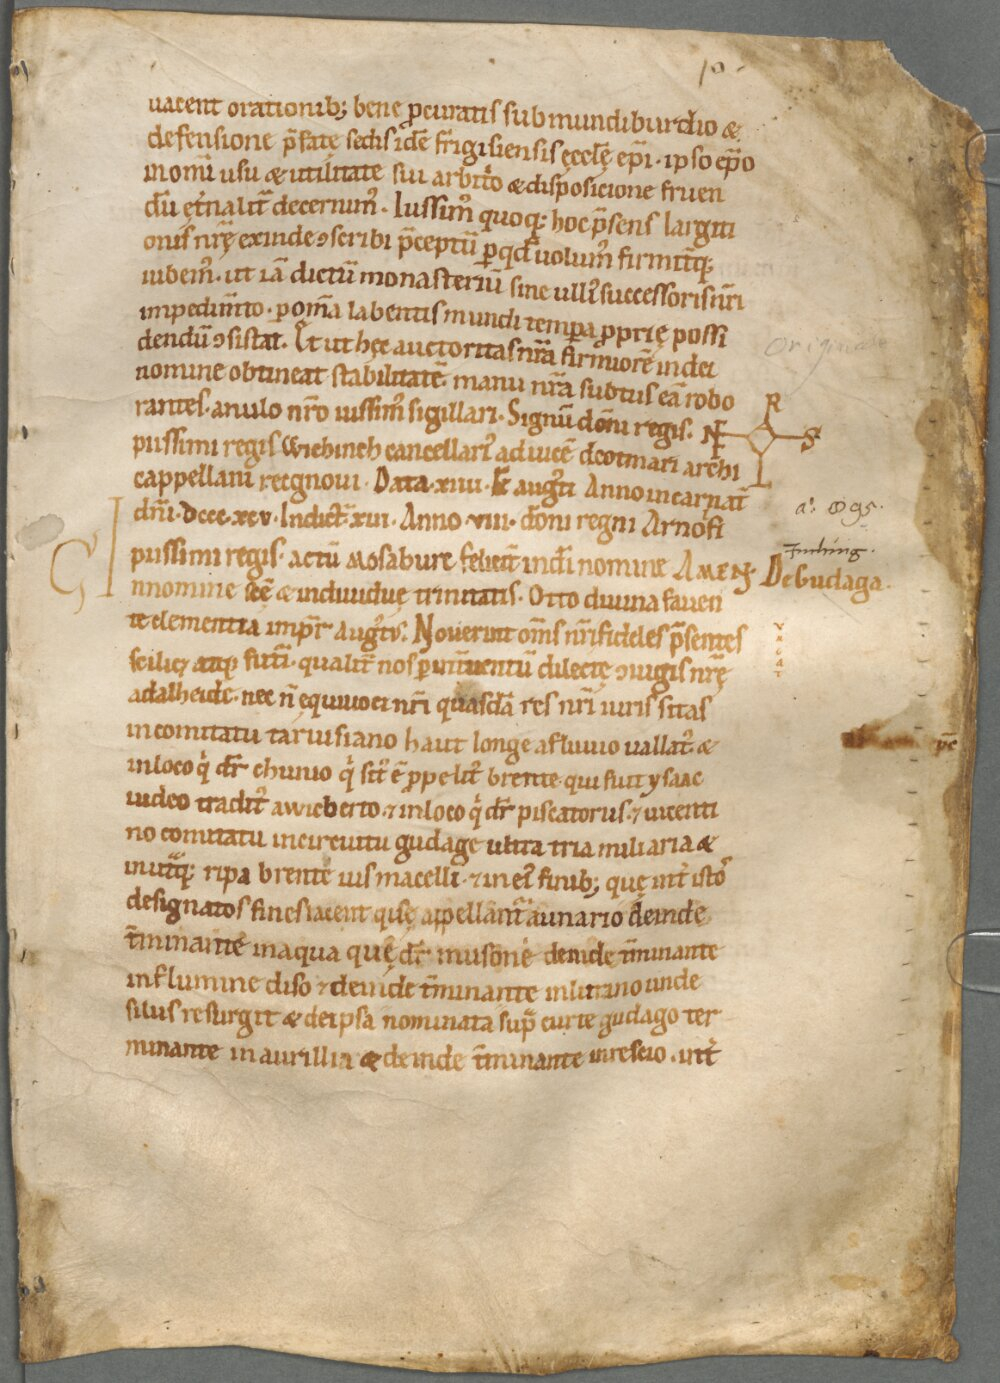 10.
uacent orationib; bene ꝓcuratis sub mundiburdio &
defensione p̄fate sedis idē frigisiensis ęcclę ep̄i · ipso ep̄o
inom̄i usu & utilitate sui arbit̄o & disposicione fruen
dū et̄nalit̄ decernim᾽. Iussim᾽ quoq; hoc p̄sens largiti
onis nr̄ę exinde ꝯscribi p̄ceptū ꝑ qd̄ uolum᾽ firmit̄q;
iubem᾽. ut iā dictū monasteriū sine ulli᾽ successoris nr̄i
impedim̄to · ꝑ om̄a labentis mundi tempa ꝓprię possi
dendū ꝯsistat. Et ut hęc auctoritas nr̄a firmiorē in dei
nomine obtineat stabilitatē. manu nr̄a subtus eā robo
rantes · anulo nr̄o iussim᾽ sigillari. Signū dōni regis.
piissimi regis Wichinch cancellari᾽ ad uicē deotmari archi
cappellani recgnoui. Data · xiiii · k̄ aug᾽ti Anno incarnat̄
dn̄i · Dccc · xcv · Indict̄ · xiii · Anno · viii · dōni regni Arnofi
piissimi regis · actū Mosabure felicit̄ in dī nomine AMEN.
De Gudaga.
Originale
R
N S
L
a°. 895.
Inching.
uacat
In nomine scē & indiuidue trinitatis. Otto diuina fauen
te clementia imp̄r aug᾽t᾽. Nouerint om̄s nr̄i fideles p̄sentes
scilic& atq; futi᾽. qualit̄ nos ꝑ int̄uentū dilectę ꝯiugis nr̄ę
adalheide · nec n̄ equiuoci nr̄i quasdā res nr̄i iuris sitas
in comitatu taruisiano haut longe a fluuio uallat᾽ &
in loco q̄ dr̄ chunio q̄ sit᾽ ē ꝓpe lit᾽ brente qui fuit ysaac
iudeo tradit᾽ a wicberto · ⁊ in loco q̄ dr̄ piscatorus · ⁊ uicenti
no comitatu in circuitu gudage ultra tria miliaria &
in ut̄q; ripa brente ius macelli · ⁊ in ei᾽ finib; que int̄ isto᾽
designatos fines iacent qi sę appellant᾽ aunario deinde
t̄minante in aqua quę dr̄ musone deinde t̄minante
in flumine diso ⁊ deinde t̄minante in liurano unde
silus resurgit & de ipsa nominata sup̄ curte gudago ter
minante in aurillia & deinde t̄minante in rescio · int̄